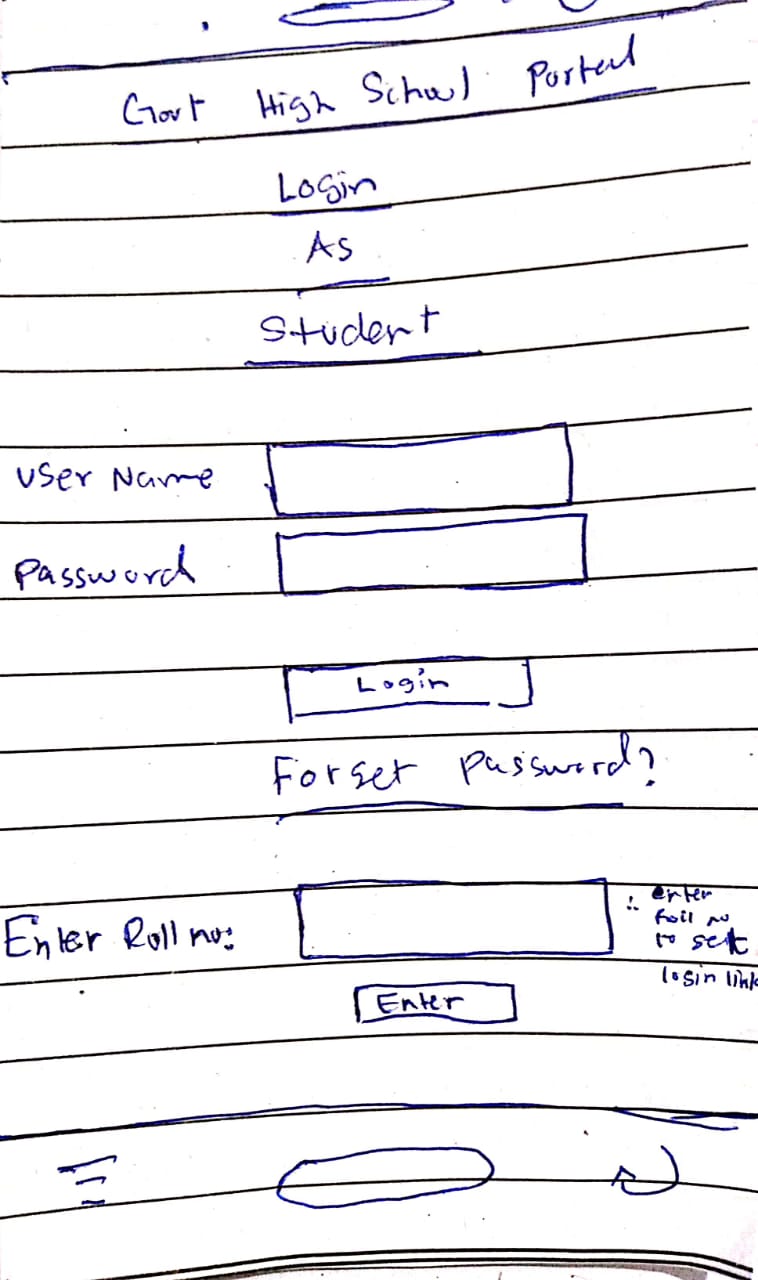 Govt High School Portal
Login
As
Student
User Name
Password
Login
Forget Password?
Enter Roll no:
∴ enter
roll no
to
login link
Enter